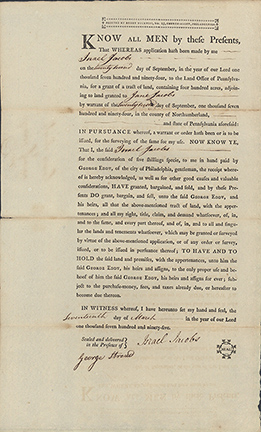 KNOW ALL MEN by these Presents,
That WHEREAS application hath been made by me
Israel Jacobs
on the day of September, in the year of our Lord one
thousand seven hundred and ninety-four, to the Land Office of Pennsylva-
nia, for a grant of a tract of land, containing four hundred acres, adjoin-
ing to land granted to Jane Jacobs
by warrant of the day of September, one thousand seven
hundred and ninety-four, in the county of Northumberland,
and state of Pennsylvania aforesaid:
IN PURSUANCE whereof, a warrant or order hath been or is to be
issued, for the surveying of the same for my use. NOW KNOW YE,
That I, the said Israel Jacobs
for the consideration of five shillings specie, to me in hand paid by
GEORGE EDDY, of the city of Philadelphia, gentleman, the receipt where-
of is hereby acknowledged, as well as for other good causes and valuable
considerations, HAVE granted, bargained, and sold, and by these Pre-
sents DO grant, bargain, and sell, unto the said GEORGE EDDY, and
his heirs, all that the above-mentioned tract of land, with the appur-
tenances; and all my right, title, claim, and demand whatsoever, of, in,
and to the same, and every part thereof, and of, in, and to all and singu-
lar the lands and tenements whatsoever, which may be granted or surveyed
by virtue of the above-mentioned application, or of any order or survey,
issued, or to be issued in pursuance thereof; TO HAVE AND TO
HOLD the said land and premises, with the appurtenances, unto him the
said GEORGE EDDY, his heirs and assigns, to the only proper use and be-
hoof of him the said GEORGE EDDY, his heirs and assigns for ever; sub-
ject to the purchase-money, fees, and taxes already due, or hereafter to
become due thereon.
IN WITNESS whereof, I have hereunto set my hand and seal, the
seventeenth day of March in the year of our Lord
one thousand seven hundred and ninety-five.
Sealed and delivered
in the Presence of
Israel Jacobs
SEAL
George